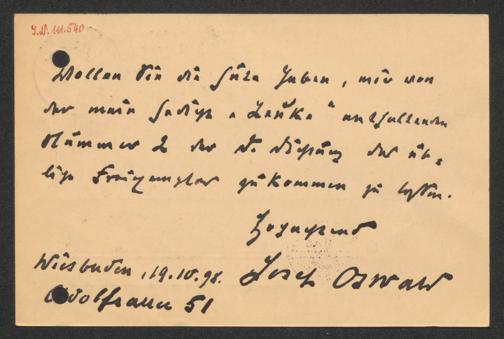 J.N. 111.540
Wollen Sie die Güte haben, mir von
der mein Gedicht „Lenke“ enthaltenden
Nummer 2 der D. Dichtung das üb-
liche Freiexemplar zukommen zu lassen.
Hochachtend
Wiesbaden, 19.10.98. Josef Oswald
Adolfsallee 51